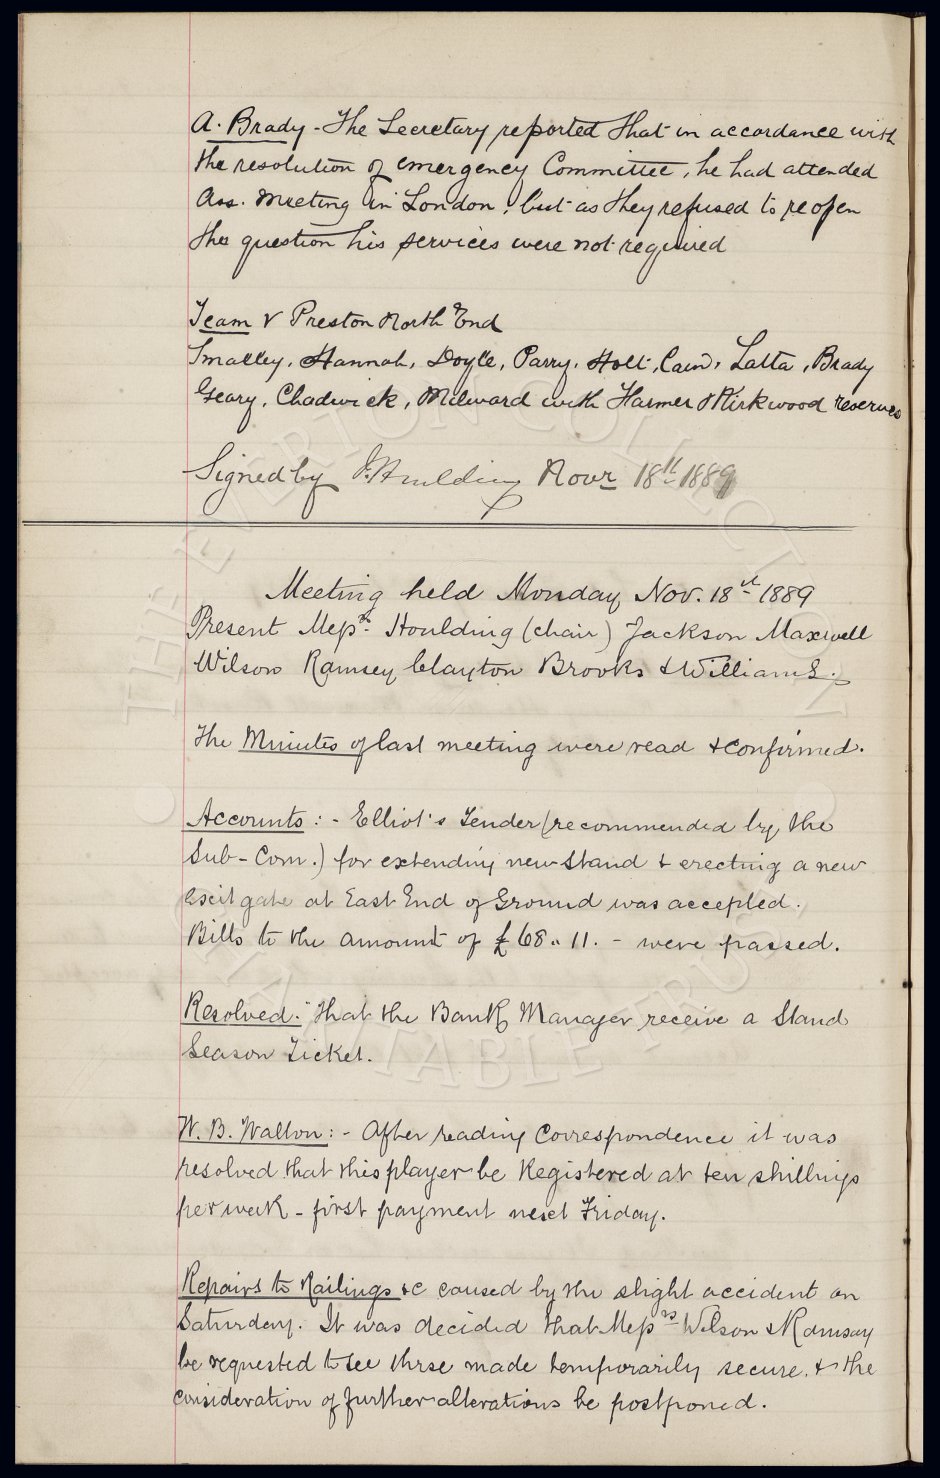 A. Brady - The Secretary reported that in accordance with
the resolution of emergency Committee, he had attended
Ass. meeting in London, but as they refused to reopen
the question his services were not required
Team v Preston North End
Smalley, Hannah, Doyle, Parry, Holt, Cain, Latta, Brady
Geary, Chadwick, Milward with Harmer & Kirkwood reserves
Signed by J. Houlding Novr 18th 1889
Meeting held Monday Nov. 18th 1889
Present Messrs Houlding (chair) Jackson Maxwell
Wilson Ramsey Clayton Brooks & Williams.
The Minutes of last meeting were read & confirmed.
Accounts :- Elliot's Tender (recommended by the
Sub-Com.) for extending new Stand & erecting a new
Exit gate at East End of Ground was accepted.
Bills to the amount of £68 " 11. - were passed.
Resolved:- That the Bank Manager receive a Stand
Season Ticket.
W. B. Walton :- After reading Correspondence it was
resolved that this player be Registered at ten shillings
per week - first payment next Friday.
Repairs to Railings &c caused by the slight accident on
Saturday. It was decided that Messrs Wilson & Ramsay
be requested to see these made temporarily secure, & the
consideration of further alterations be postponed.
THE EVERTON COLLECTION
CHARITABLE TRUST